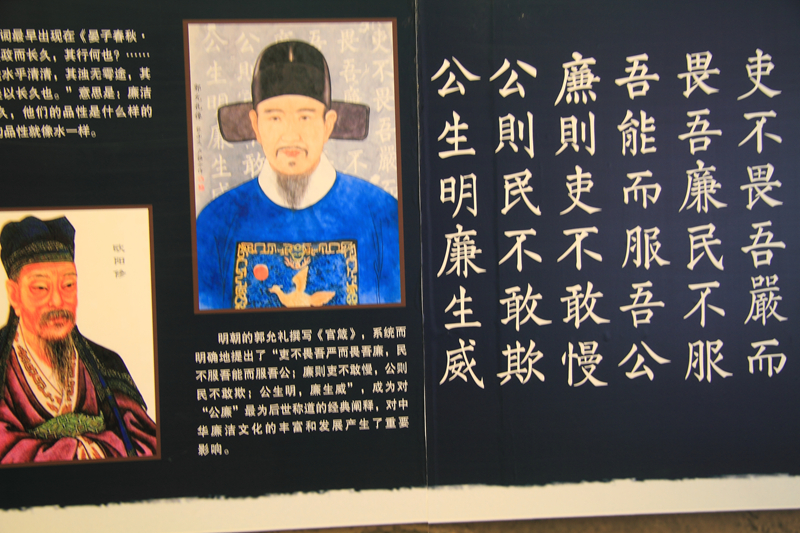 词最早出现在《晏子春秋·
政而长久，其行何也？……
水乎清清，其浊无雩途，其
以长久也。”意思是：廉洁
久，他们的品性是什么样的
品性就像水一样。
欧阳修
郭允礼像
明朝的郭允礼撰写《官箴》，系统而
明确地提出了“吏不畏吾严而畏吾廉，民
不服吾能而服吾公；廉则吏不敢慢，公则
民不敢欺；公生明，廉生威”，成为对
“公廉”最为后世称道的经典阐释，对中
华廉洁文化的丰富和发展产生了重要
影响。
吏不畏吾嚴而
畏吾廉民不服
吾能而服吾公
廉則吏不敢慢
公則民不敢欺
公生明廉生威